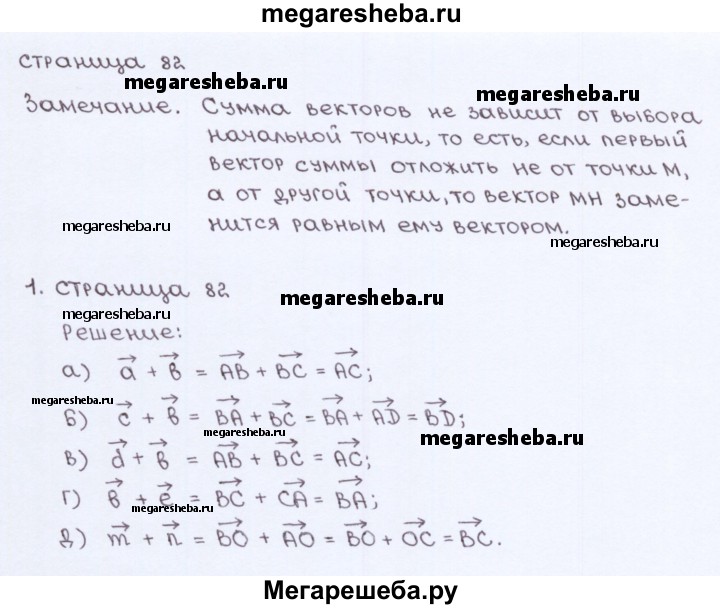 megaresheba.ru
страница 82
megaresheba.ru
megaresheba.ru
Замечание. Сумма векторов не зависит от выбора
начальной точки, то есть, если первый
вектор суммы отложить не от точки М,
а от другой точки, то вектор МН заме-
megaresheba.ru
нится равным ему вектором.
megaresheba.ru
1. страница 82
megaresheba.ru
megaresheba.ru
Решение:
а) a⃗ + b⃗ = AB⃗ + BC⃗ = AC⃗;
megaresheba.ru
б) c⃗ + b⃗ = BA⃗ + BC⃗ = BA⃗ + AD⃗ = BD⃗;
megaresheba.ru
megaresheba.ru
в) d⃗ + b⃗ = AB⃗ + BC⃗ = AC⃗;
г) b⃗ + e⃗ = BC⃗ + CA⃗ = BA⃗;
megaresheba.ru
д) m⃗ + n⃗ = BO⃗ + AO⃗ = BO⃗ + OC⃗ = BC⃗.
Мегарешеба.ру